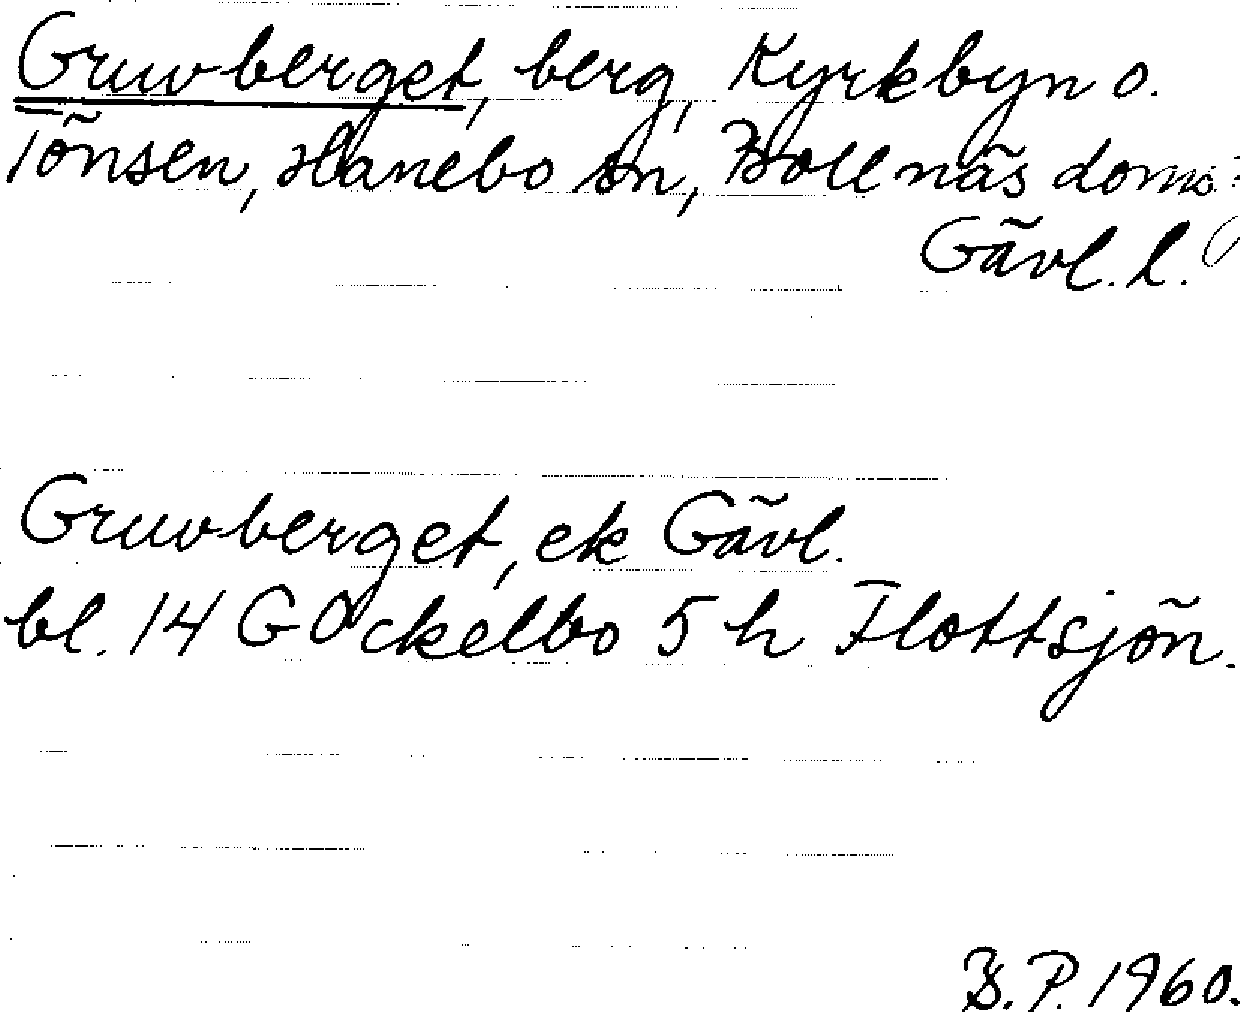 Gruvberget, berg, Kyrkbyn o.
Tönsen, Hanebo sn, Bollnäs doms:
Gävl. l.
Gruvberget, ek Gävl.
bl. 14 G Ockelbo 5 h Flottsjön.
B. P. 1960.